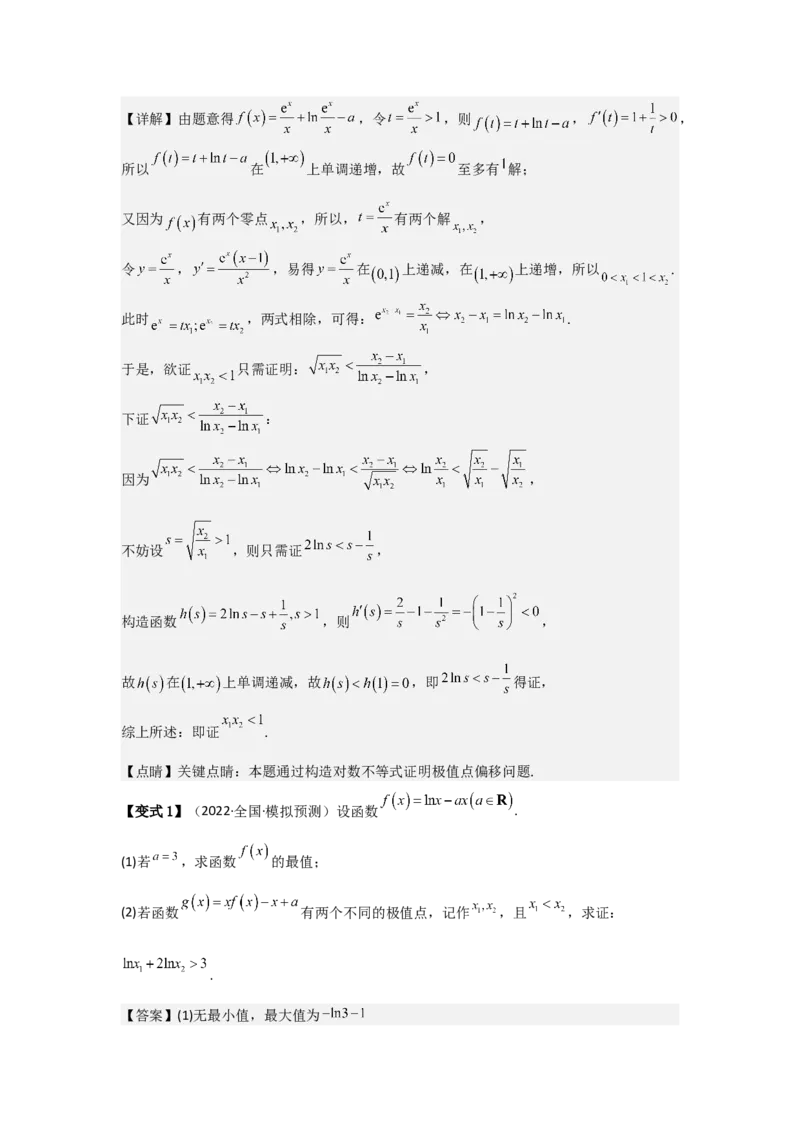 【详解】由题意得 f(x)=e^x/x+ln e^x/x−a，令 t=e^x/x>1，则 f(t)=t+ln t−a，f′(t)=1+1/t>0，
所以 f(t)=t+ln t−a 在 (1,+∞) 上单调递增，故 f(t)=0 至多有 1 解；
又因为 f(x) 有两个零点 x₁,x₂，所以，t=e^x/x 有两个解 x₁,x₂，
令 y=e^x/x，y′=e^x(x−1)/x²，易得 y=e^x/x 在 (0,1) 上递减，在 (1,+∞) 上递增，所以 0<x₁<1<x₂.
此时 e^x₁=tx₁;e^x₂=tx₂，两式相除，可得：e^(x₂−x₁)=x₂/x₁⇔x₂−x₁=ln x₂−ln x₁.
于是，欲证 x₁x₂<1 只需证明：√(x₁x₂)<(x₂−x₁)/(ln x₂−ln x₁)，
下证 √(x₁x₂)<(x₂−x₁)/(ln x₂−ln x₁)：
因为 √(x₁x₂)<(x₂−x₁)/(ln x₂−ln x₁)⇔ln x₂−ln x₁<(x₂−x₁)/√(x₁x₂)⇔ln x₂/x₁<√(x₂/x₁)−√(x₁/x₂)，
不妨设 s=√(x₂/x₁)>1，则只需证 2ln s<s−1/s，
构造函数 h(s)=2ln s−s+1/s,s>1，则 h′(s)=2/s−1−1/s²=−(1−1/s)²<0，
故 h(s) 在 (1,+∞) 上单调递减，故 h(s)<h(1)=0，即 2ln s<s−1/s 得证，
综上所述：即证 x₁x₂<1.
【点睛】关键点睛：本题通过构造对数不等式证明极值点偏移问题.
【变式1】（2022·全国·模拟预测）设函数 f(x)=lnx−ax(a∈R).
(1)若 a=3，求函数 f(x) 的最值；
(2)若函数 g(x)=xf(x)−x+a 有两个不同的极值点，记作 x₁,x₂，且 x₁<x₂，求证：
lnx₁+2lnx₂>3.
【答案】(1)无最小值，最大值为 −ln3−1